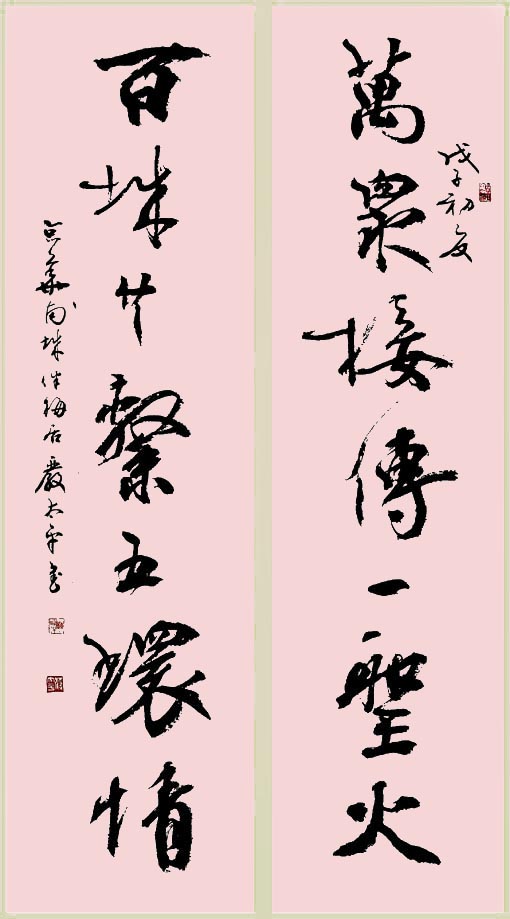 戊子初夏
萬衆接傳一聖火
百城共繫五環情
京華南城伴梅居嚴太平書